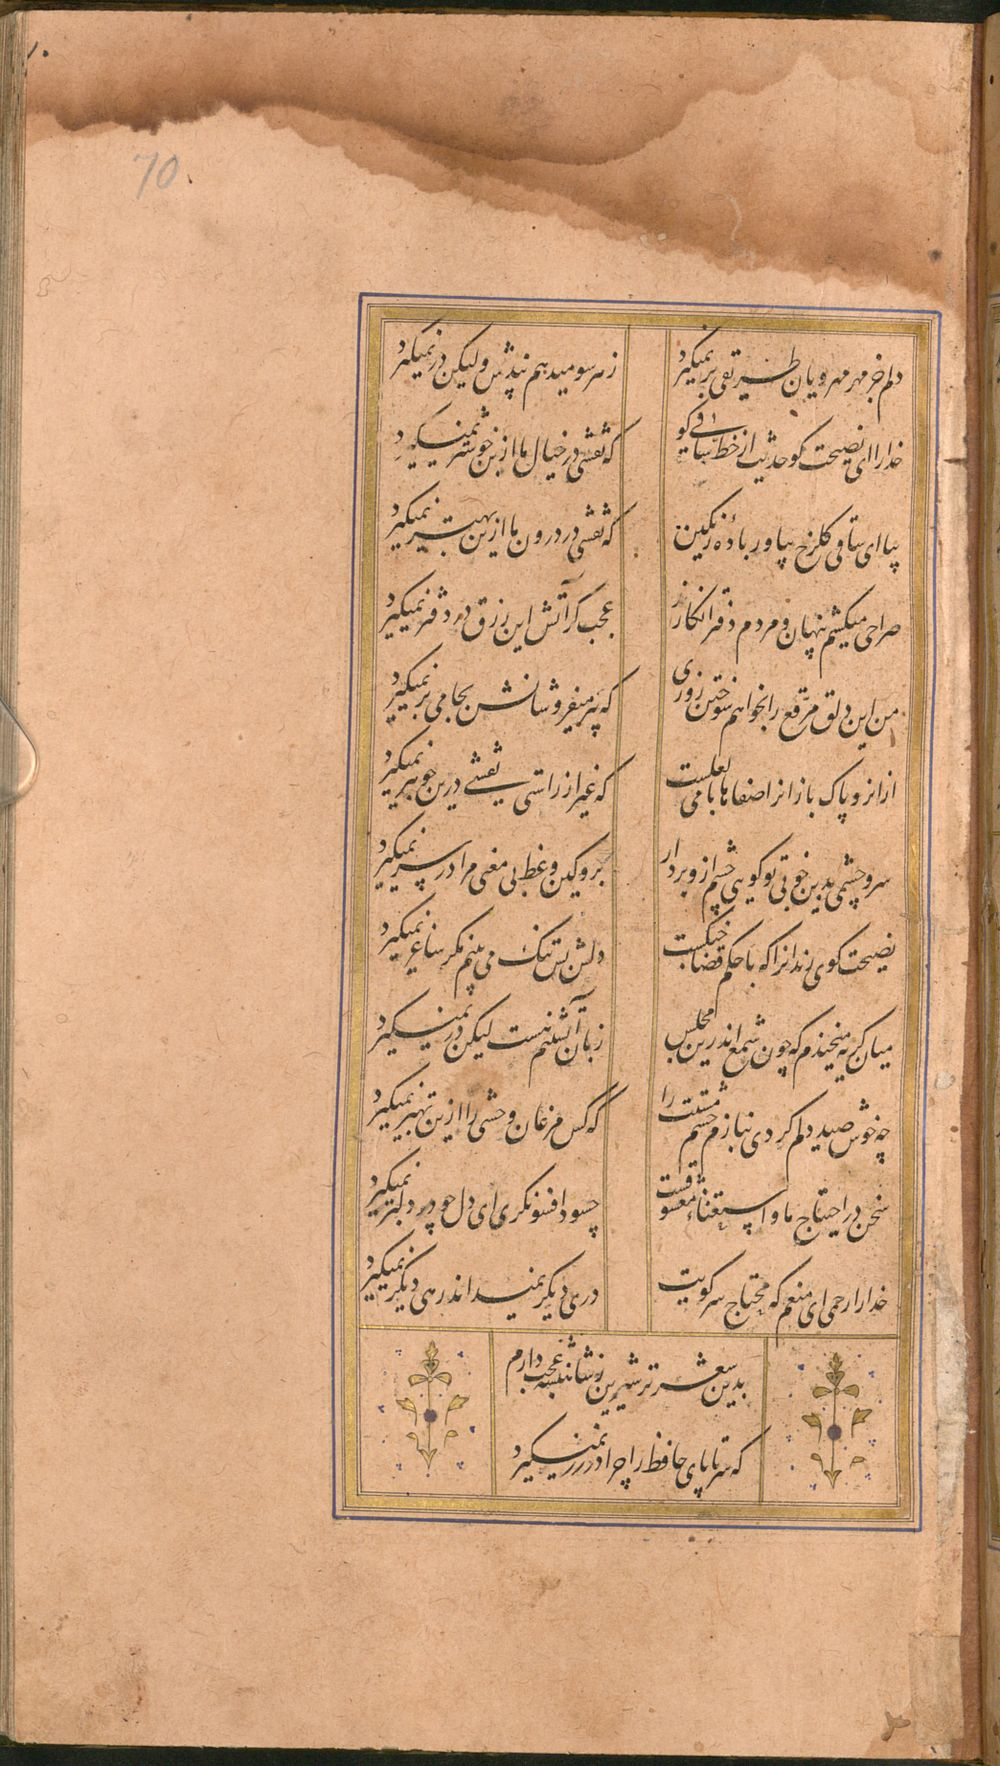 70
دلم جز مهر مهرویان طریقی بر نمیکیرد
ز هر سو میدهم پندش ولیکن در نمیکیرد
خدا را ای نصیحت کو حدیث از خط ساقی کو
که نقشی در خیال ما ازین خوشتر نمیکیرد
بیا ای ساقی کلرخ بیاور بادهٔ رنکین
که نقشی در درون ما ازین بهتر نمیکیرد
صراحی میکشم پنهان و مردم دفتر انکارند
عجب کر آتش این زرق در دفتر نمیکیرد
من این دلق مرقع را بخواهم سوختن روزی
که پیر میفروشانش بجامی بر نمیکیرد
از آنرو پاک بازانرا صفاها با می لعلست
که غیر از راستی نقشی درین جوهر نمیکیرد
سر و چشمی بدین خوبی تو کویی چشم ازو بردار
برو کین وعظ بی معنی مرا در سر نمیکیرد
نصیحت کوی رندانرا که با حکم قضا جنکست
دلش بس تنک می بینم مکر ساغر نمیکیرد
میان کریه میخندم که چون شمع اندرین مجلس
زبان آتشینم هست لیکن در نمیکیرد
چه خوش صید دلم کردی بنازم چشم مستت را
که کس مرغان وحشی را ازین بهتر نمیکیرد
سخن در احتیاج ما و استغناء معشوقست
چه سود افسونکری ای دل چو در دلبر نمیکیرد
خدا را رحمی ای منعم که محتاج سر کویت
دری دیکر نمیداند رهی دیکر نمیکیرد
بدین شعر تر شیرین ز شاهنشه عجب دارم
که سر تا پای حافظ را چرا در زر نمیکیرد